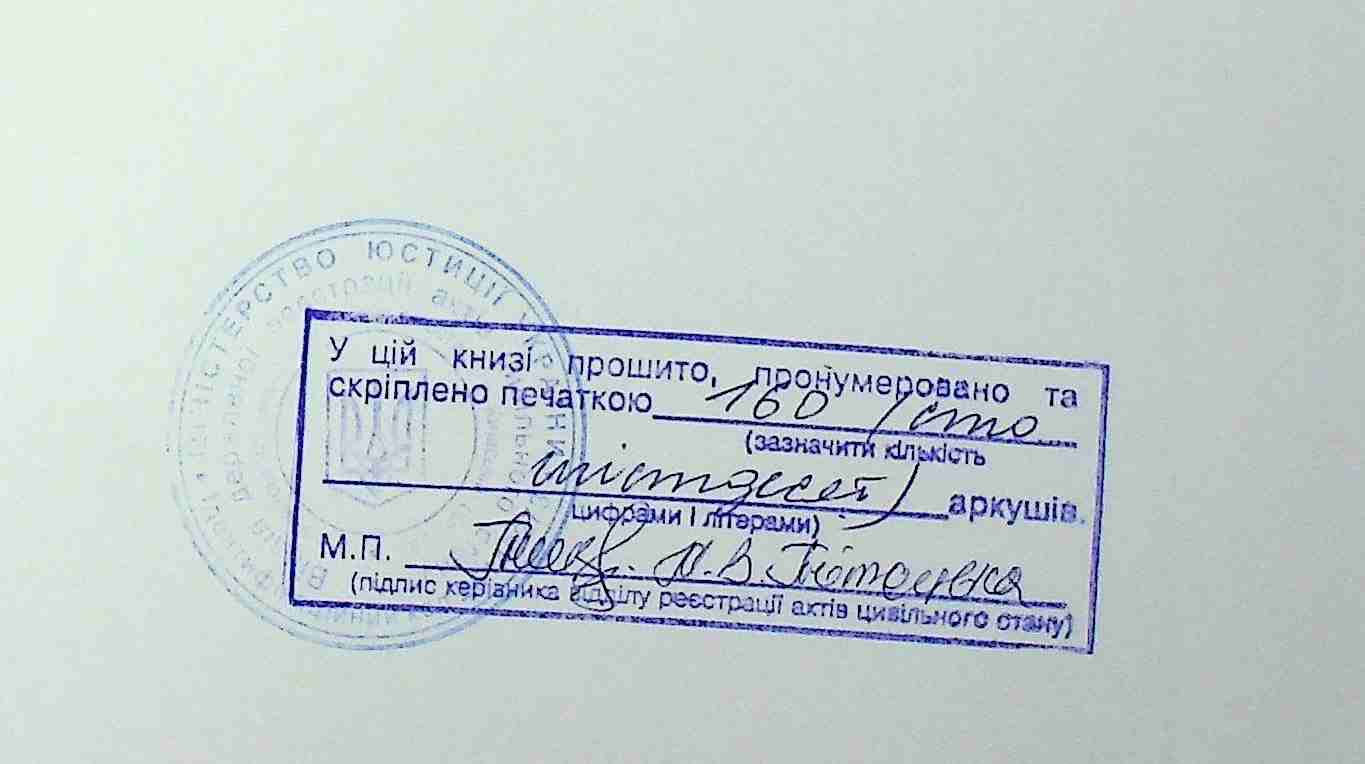 МІНІСТЕРСТВО ЮСТИЦІЇ УКРАЇНИ
державної реєстрації актів цивільного
У цій книзі прошито, пронумеровано та
скріплено печаткою 160 (сто
(зазначити кількість
шістдесят) аркушів.
цифрами і літерами)
М.П. Н.В. Пітоцька
(підпис керівника відділу реєстрації актів цивільного стану)